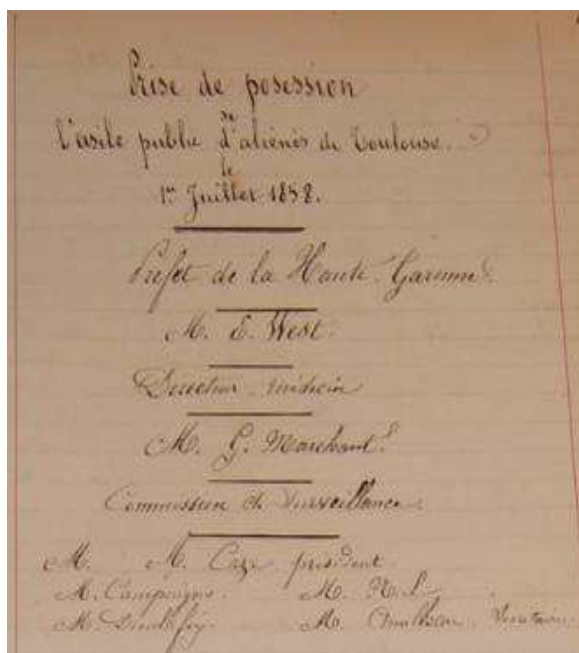 Prise de posession
de
l'asile public d'aliénés de Toulouse.
le
1er Juillet 1858.
Préfet de la Haute-Garonne
M. E. West.
Directeur-médecin
M. G. Marchant
Commission de surveillance.
M. M. Caze président
M. Campaigno. M.
M. M. Secrétaire